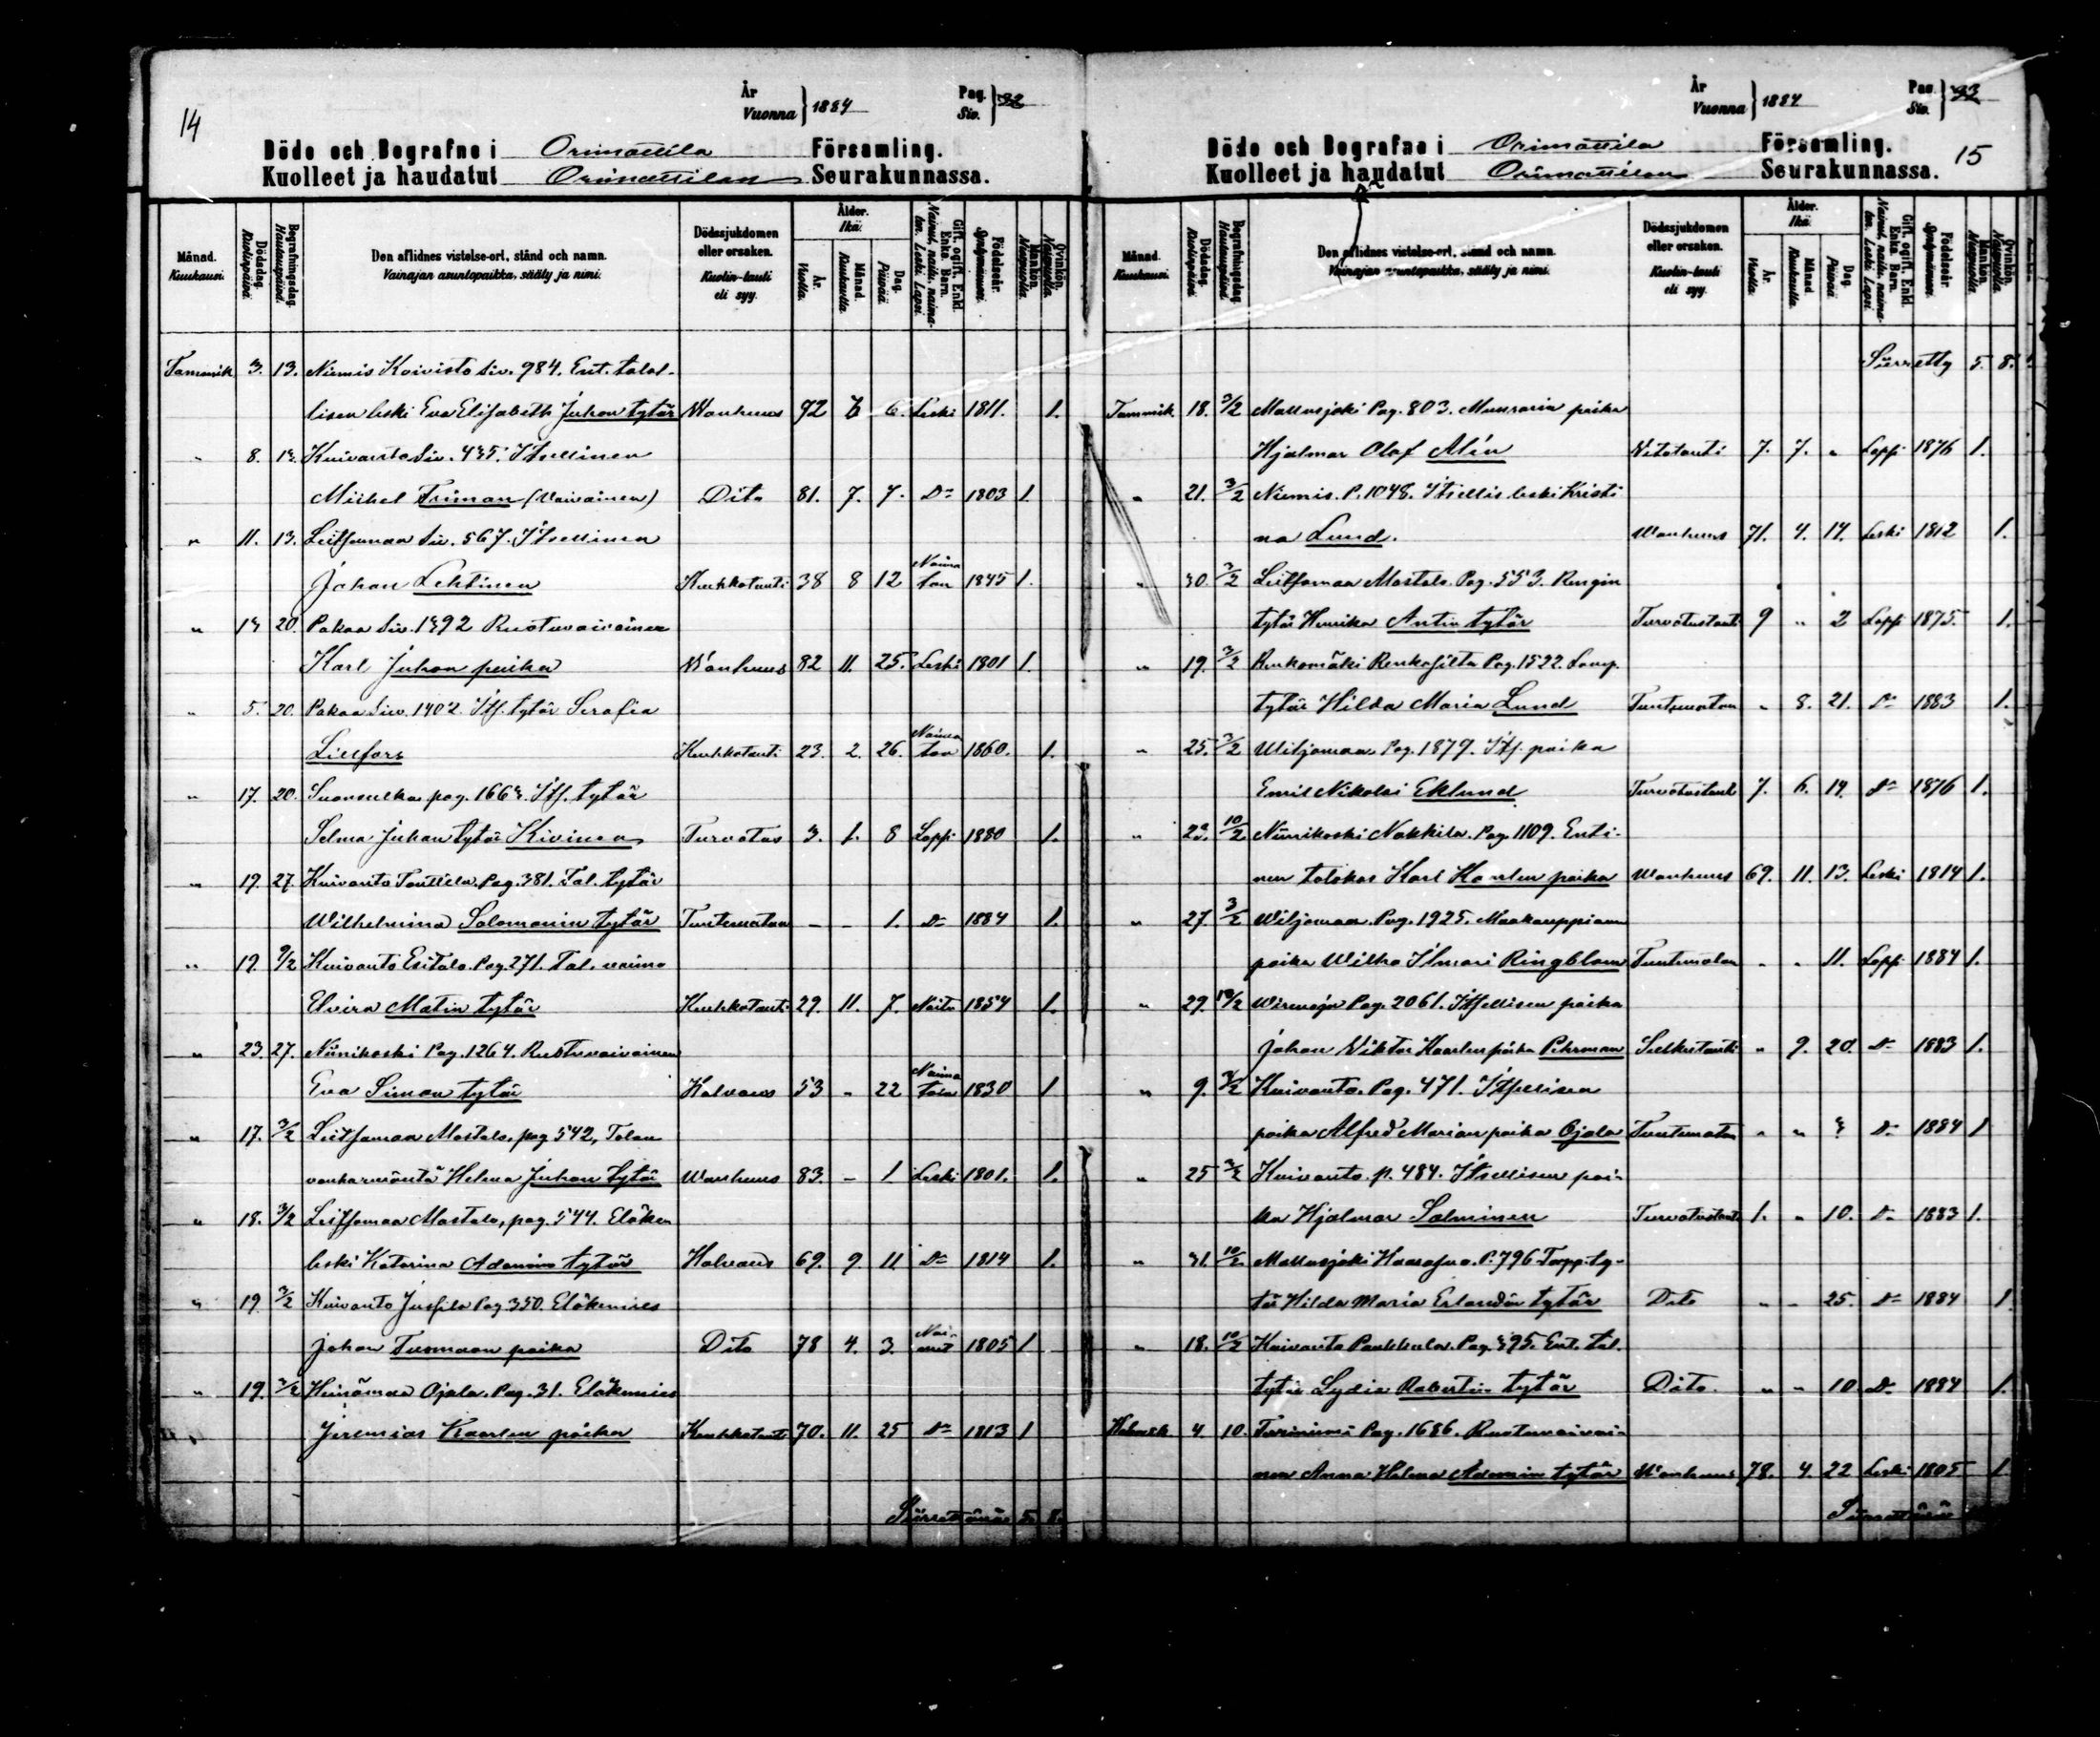 14
År
Vuonna } 1884
Pag.
Siv. } 32
Döde och Begrafne i Orimattila Församling.
Kuolleet ja haudatut Orimattilan Seurakunnassa.
Månad. Kuukausi.
Dödsdag. Kuolinpäivä.
Begrafningsdag. Hautauspäivä.
Den aflidnes vistelse-ort, stånd och namn.
Vainajan asuntopaikka, sääty ja nimi.
Dödssjukdomen eller orsaken.
Kuolin-tauti eli syy.
Ålder. Ikä.
År. Vuotta.
Månad. Kuukautta.
Dag. Päivää.
Gift, ogift, Enkl. Enka. Barn.
Nainut, naitu, naimaton. Leski. Lapsi.
Födelseår. Syntymävuosi.
Mankön. Miespuolia.
Qvinkön. Naispuolia.
Tammik. 3. 13. Niemis Koivisto Siv. 984. Ent. talol-
lisen leski Eva Elisabeth Juhon tytär Wanhuus 72 6. Leski 1811. 1.
" 8. Kuivanto Siv. 435. Itsellinen
Michel Friman (Vaivainen) Dito 81. 7. 7. Do 1803 1.
" 11. 13. Leitsamaa Siv. 567. Itsellinen
Johan Lehtinen Keuhkotauti 38 8 12 Naimaton 1845 1.
" 20. Pakaa Siv. 1392 Ruotuvaivainen
Karl Juhon poika Wanhuus 82 11. 25. Leski 1801 1.
" 5. 20. Pakaa Siv. 1402. Its. tytär Serafia
Lillfors Keuhkotauti 23. 2. 26. Naimaton 1860. 1.
" 17. 20. pag. 1663. Its. tytär
Selma Juhan tytär Kivinen Turvotus 3. 1. 8 Lapsi 1880 1.
" 19. 27. Kuivanto Tonttila. Pag. 381. Tal. tytär
Wilhelmina Salomonin tytär Tuntematon - - 1. Do 1884 1.
" 19. 9/2 Kuivanto Esitalo. Pag. 271. Tal. vaimo
Elvira Matin tytär Keuhkotauti 29. 11. 7. Naitu 1854 1.
" 23. 27. Niinikoski Pag. 1264. Ruotuvaivainen
Eva Simon tytär Halvaus 53 - 22 Naimaton 1830 1
" 17. 3/2 Leitsamaa Mastola, pag. 542, Talon
vanha emäntä Helena Juhan tytär Wanhuus 83. - 1 Leski 1801. 1.
" 18. 3/2 Leitsamaa Mastola, pag. 544. Eläken
leski Katarina Adamin tytär Halvaus 69. 9 11 Do 1814 1.
" 19. 3/2 Kuivanto Jussila Pag. 350. Eläkemies
Johan Tuomaan poika Dito 78 4. 3. Nainut 1805 1
" 19. 3/2 Heinämaa Ojala. Pag. 31. Eläkemies
Jeremias Kaarlen poika Keuhkotauti 70. 11. 25 Do 1813 1
Siirrettävä 5. 8.
År
Vuonna } 1884
Pag.
Siv. } 33
15
Döde och Begrafne i Orimattila Församling.
Kuolleet ja haudatut Orimattilan Seurakunnassa.
Månad. Kuukausi.
Dödsdag. Kuolinpäivä.
Begrafningsdag. Hautauspäivä.
Den aflidnes vistelse-ort, stånd och namn.
Vainajan asuntopaikka, sääty ja nimi.
Dödssjukdomen eller orsaken.
Kuolin-tauti eli syy.
Ålder. Ikä.
År. Vuotta.
Månad. Kuukautta.
Dag. Päivää.
Gift, ogift, Enkl. Enka. Barn.
Nainut, naitu, naimaton. Leski. Lapsi.
Födelseår. Syntymävuosi.
Mankön. Miespuolia.
Qvinkön. Naispuolia.
Siirretty 5. 8.
Tammik 18. 3/2 Mallusjoki Pag. 803. Muurarin poika
Hjalmar Olaf Alin Vetotauti 7. 7. " Lapsi 1876 1.
" 21. 3/2 Niemis. P. 1048. Itsellis leski Kristi
na Lund. Wanhuus 71. 4. 14. Leski 1812 1.
" 30. 3/2 Leitsamaa Mastola. Pag. 553. Rengin
tytär Henrika Antin tytär Turvotustauti 9 " 2 Lapsi 1875. 1.
" 19. 3/2 Renkomäki Pag. 1522. Lamp.
tytär Hilda Maria Lund Tuntematon " 8. 21. Do 1883 1.
" 25. 3/2 Wiljamaa Pag. 1879. Its. poika
Emil Nikolai Eklund Turvotustauti 7. 6. 14. Do 1876 1.
" 10/2 Niinikoski Nakkila. Pag. 1109. Enti-
nen talokas Karl Kaarlen poika Wanhuus 69. 11. 13. Leski 1814 1.
" 27. 3/2 Wiljamaa Pag. 1925. Maakauppiaan
poika Wilho Ilmari Ringblom Tuntematon " " 11. Lapsi 1884 1.
" 29. 10/2 Wirenoja Pag. 2061. Itsellisen poika
Johan Viktor Kaarlen poika Pehrman " 9. 20. Do 1883 1.
" 9. 3/2 Kuivanto. Pag. 471. Itsellisen
poika Alfred Marian poika Ojala Tuntematon " " Do 1884 1
" 25 3/2 Kuivanto. p. 484. Itsellisen poi-
ka Hjalmar Salminen Turvotustauti 1. " 10. Do 1883 1.
" 31. 10/2 Mallusjoki P. 796 Torpp. ty-
tär Hilda Maria Erlandin tytär Dito " - 25. Do 1884 1
" 18. 10/2 Kuivanto Paukkula. Pag. 395. Ent. tal.
tytär Lydia Robertin tytär Dito. " " 10 Do 1884 1.
Helmik 4. 10. Pag. 1686. Ruotuvaivai-
nen Anna Helena Adamin tytär Wanhuus 78. 4. 22 Leski 1805 1
Siirrettävä